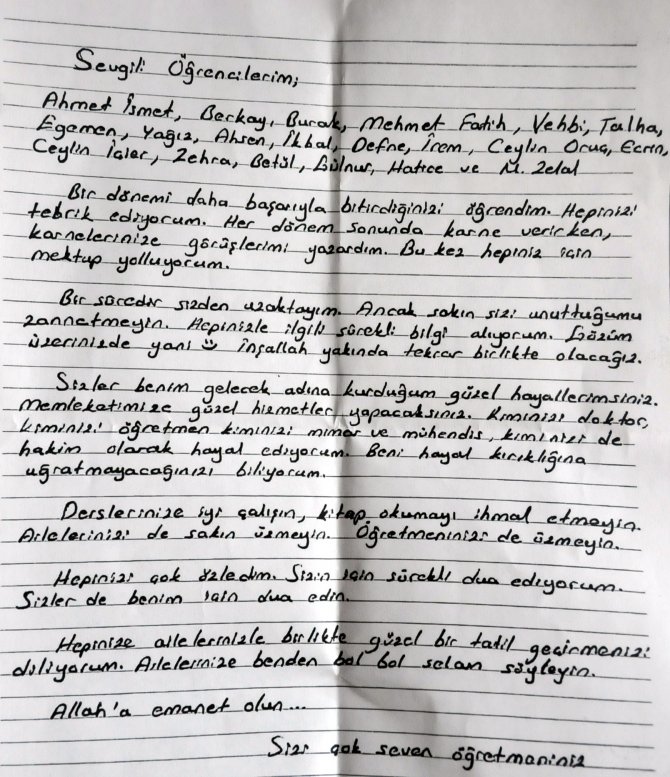 Sevgili Öğrencilerim;
Ahmet İsmet, Berkay, Burak, Mehmet Fatih, Vehbi, Talha,
Egemen, Yağız, Ahsen, İkbal, Defne, İrem, Ceylin Oruç, Ecrin,
Ceylin İçler, Zehra, Betül, Gülnur, Hatice ve M. Zelal
Bir dönemi daha başarıyla bitirdiğinizi öğrendim. Hepinizi
tebrik ediyorum. Her dönem sonunda karne verirken,
karnelerinize görüşlerimi yazardım. Bu kez hepiniz için
mektup yolluyorum.
Bir süredir sizden uzaktayım. Ancak sakın sizi unuttuğumu
zannetmeyin. Hepinizle ilgili sürekli bilgi alıyorum. Gözüm
üzerinizde yani ☺ İnşallah yakında tekrar birlikte olacağız.
Sizler benim gelecek adına kurduğum güzel hayallerimsiniz.
Memleketimize güzel hizmetler yapacaksınız. Kiminizi doktor,
kiminizi öğretmen kiminizi mimar ve mühendis, kiminizi de
hakim olarak hayal ediyorum. Beni hayal kırıklığına
uğratmayacağınızı biliyorum.
Derslerinize iyi çalışın, kitap okumayı ihmal etmeyin.
Ailelerinizi de sakın üzmeyin. Öğretmeninizi de üzmeyin.
Hepinizi çok özledim. Sizin için sürekli dua ediyorum.
Sizler de benim için dua edin.
Hepinize ailelerinizle birlikte güzel bir tatil geçirmenizi
diliyorum. Ailelerinize benden bol bol selam söyleyin.
Allah'a emanet olun...
Sizi çok seven öğretmeniniz